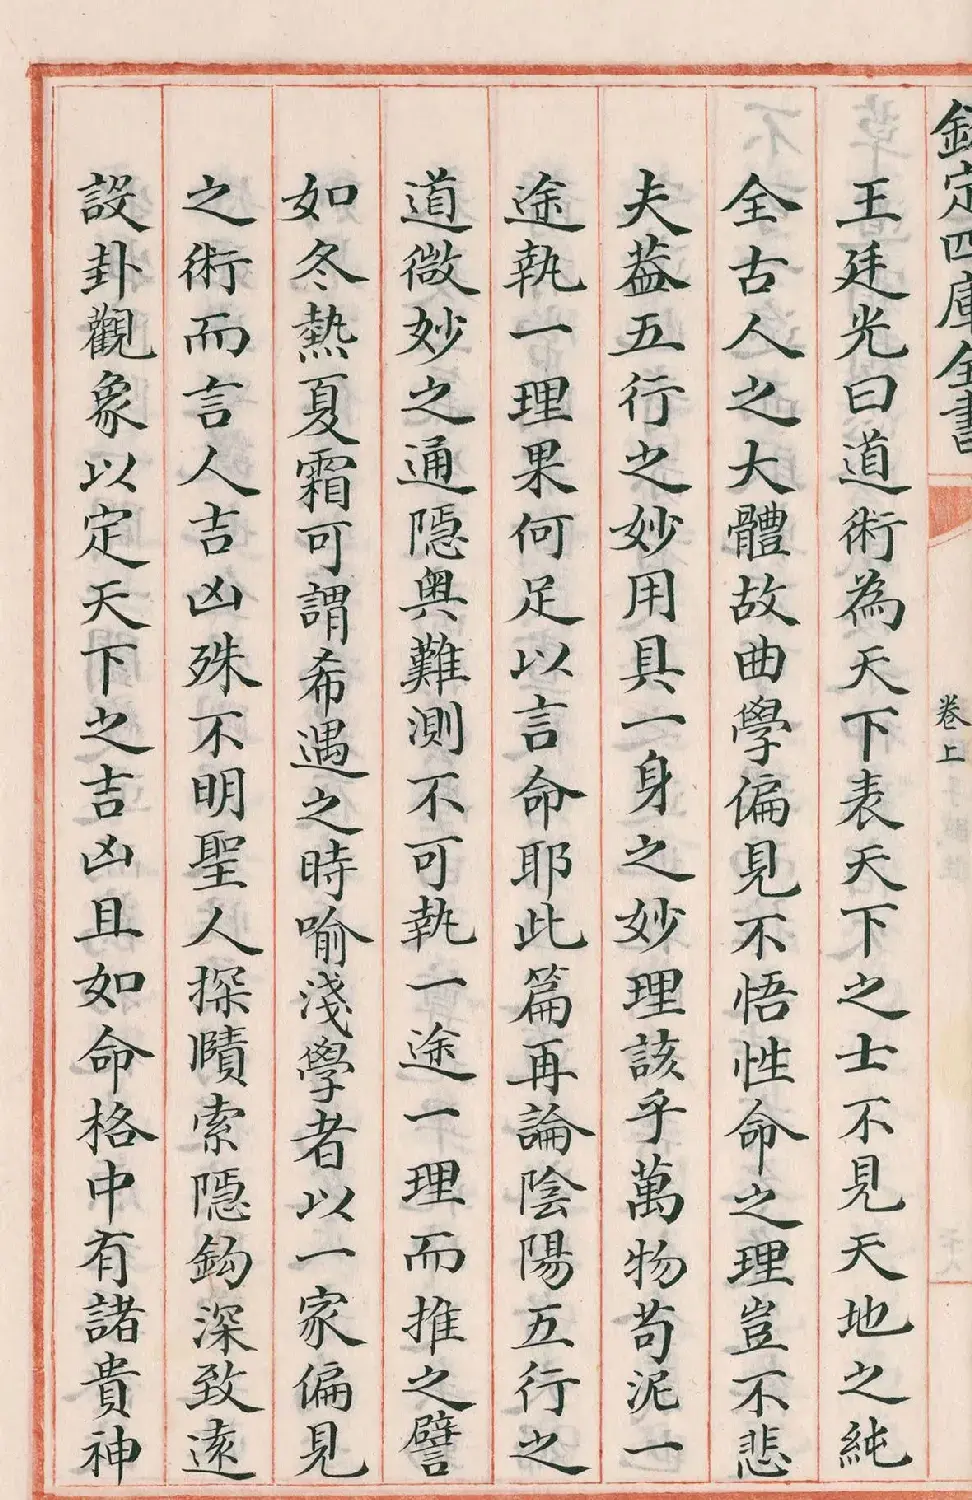 欽定四庫全書
卷上
王廷光曰道術為天下表天下之士不見天地之純
全古人之大體故曲學偏見不悟性命之理豈不悲
夫葢五行之妙用具一身之妙理該乎萬物茍泥一
途執一理果何足以言命耶此篇再論陰陽五行之
道微妙之通隱奥難測不可執一途一理而推之譬
如冬熱夏霜可謂希遇之時喻淺學者以一家偏見
之術而言人吉凶殊不明聖人探賾索隱鈎深致遠
設卦觀象以定天下之吉凶且如命格中有諸貴神